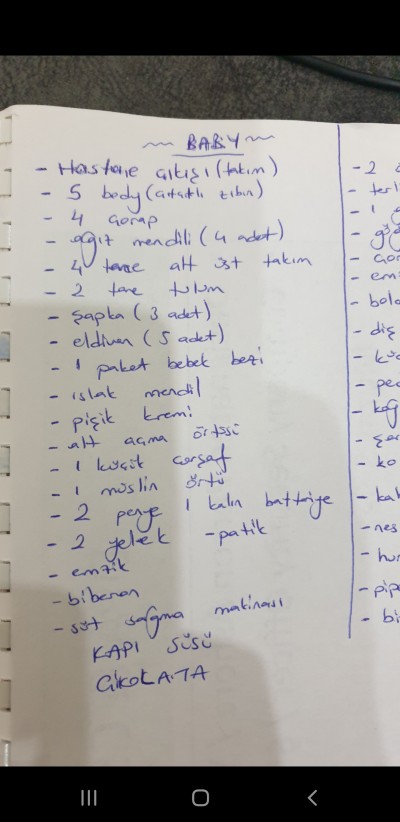 ~ BABY ~
- Hastane çıkışı (takım)
- 5 body (çıtçıtlı zıbın)
- 4 çorap
- ağız mendili (4 adet)
- 4 tane alt üst takım
- 2 tane tulum
- şapka (3 adet)
- eldiven (5 adet)
- 1 paket bebek bezi
- ıslak mendil
- pişik kremi
- alt açma örtüsü
- 1 küçük çarşaf
- 1 müslin örtü
- 2 penye 1 kalın battniye
- 2 yelek - patik
- emzik
- biberon
- süt sağma makinası
KAPI SÜSÜ
ÇİKOLATA
- 2
- terl
- 1
- em
- diş
- ko
- nes
- pip
- bi